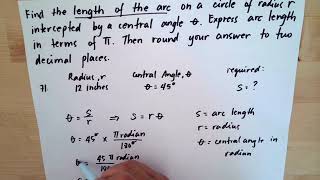 Find the length of the arc on a circle of radius r
intercepted by a central angle θ. Express arc length
in terms of π. Then round your answer to two
decimal places.
Radius, r Central Angle, θ required:
71. 12 inches θ = 45° S = ?
θ = s/r ⇒ s = rθ s = arc length
r = radius
θ = 45° × π radian/180° θ = central angle in
radian
θ = 45 π radian